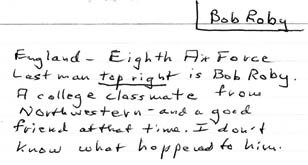 Bob Roby
England - Eighth Air Force
Last man top right is Bob Roby.
A college classmate from
Northwestern - and a good
friend at that time. I don't
know what happened to him.